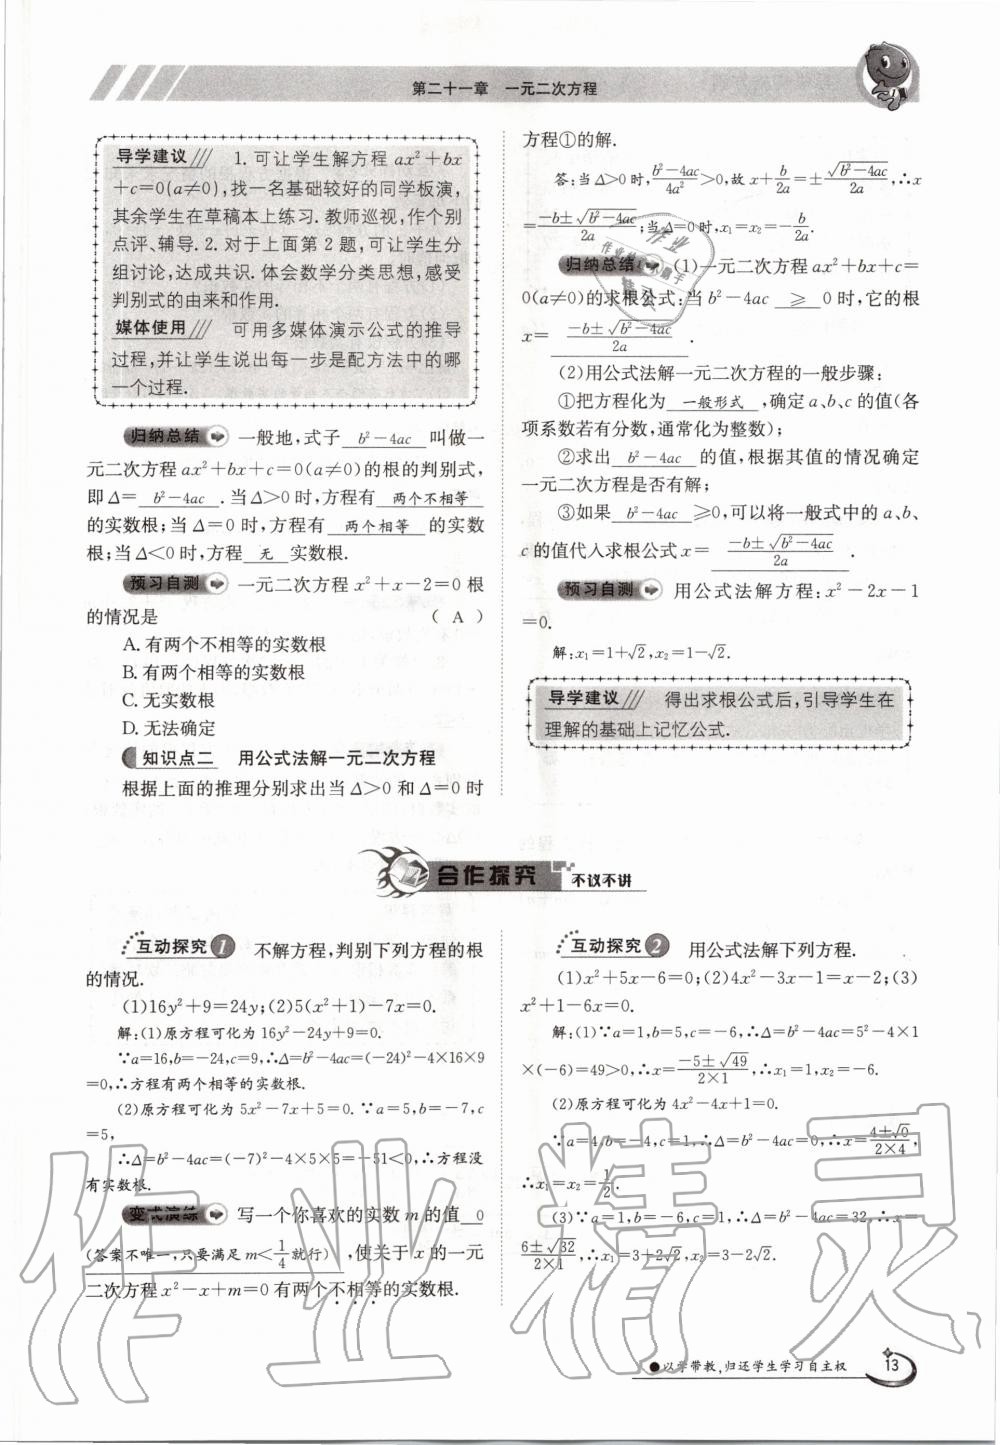 第二十一章　一元二次方程
导学建议 1. 可让学生解方程 ax²+bx
+c=0(a≠0),找一名基础较好的同学板演,
其余学生在草稿本上练习. 教师巡视,作个别
点评、辅导. 2. 对于上面第 2 题,可让学生分
组讨论,达成共识. 体会数学分类思想,感受
判别式的由来和作用.
媒体使用 可用多媒体演示公式的推导
过程,并让学生说出每一步是配方法中的哪
一个过程.
归纳总结 一般地,式子 b²-4ac 叫做一
元二次方程 ax²+bx+c=0(a≠0)的根的判别式,
即 Δ= b²-4ac .当 Δ>0 时,方程有 两个不相等
的实数根;当 Δ=0 时,方程有 两个相等 的实数
根;当 Δ<0 时,方程 无 实数根.
预习自测 一元二次方程 x²+x-2=0 根
的情况是 ( A )
A. 有两个不相等的实数根
B. 有两个相等的实数根
C. 无实数根
D. 无法确定
知识点二 用公式法解一元二次方程
根据上面的推理分别求出当 Δ>0 和 Δ=0 时
方程①的解.
答:当 Δ>0 时,(b²-4ac)/(4a²)>0,故 x+b/(2a)=±√(b²-4ac)/(2a),∴x
=(-b±√(b²-4ac))/(2a);当 Δ=0 时,x₁=x₂=-b/(2a).
归纳总结 (1)一元二次方程 ax²+bx+c=
0(a≠0)的求根公式:当 b²-4ac ≥ 0 时,它的根
x= (-b±√(b²-4ac))/(2a) .
(2)用公式法解一元二次方程的一般步骤:
①把方程化为 一般形式 ,确定 a、b、c 的值(各
项系数若有分数,通常化为整数);
②求出 b²-4ac 的值,根据其值的情况确定
一元二次方程是否有解;
③如果 b²-4ac ≥0,可以将一般式中的 a、b、
c 的值代入求根公式 x= (-b±√(b²-4ac))/(2a) .
预习自测 用公式法解方程:x²-2x-1
=0.
解:x₁=1+√2,x₂=1-√2.
导学建议 得出求根公式后,引导学生在
理解的基础上记忆公式.
合作探究 不议不讲
互动探究 1 不解方程,判别下列方程的根
的情况.
(1)16y²+9=24y;(2)5(x²+1)-7x=0.
解:(1)原方程可化为 16y²-24y+9=0.
∵a=16,b=-24,c=9,∴Δ=b²-4ac=(-24)²-4×16×9
=0,∴方程有两个相等的实数根.
(2)原方程可化为 5x²-7x+5=0. ∵a=5,b=-7,c
=5,
∴Δ=b²-4ac=(-7)²-4×5×5=-51<0,∴方程没
有实数根.
变式演练 写一个你喜欢的实数 m 的值 0
(答案不唯一,只要满足 m<1/4 就行) ,使关于 x 的一元
二次方程 x²-x+m=0 有两个不相等的实数根.
互动探究 2 用公式法解下列方程.
(1)x²+5x-6=0;(2)4x²-3x-1=x-2;(3)
x²+1-6x=0.
解:(1)∵a=1,b=5,c=-6,∴Δ=b²-4ac=5²-4×1
×(-6)=49>0,∴x=(-5±√49)/(2×1),∴x₁=1,x₂=-6.
(2)原方程可化为 4x²-4x+1=0.
∵a=4,b=-4,c=1,∴Δ=b²-4ac=0,∴x=(4±√0)/(2×4),
∴x₁=x₂=1/2.
(3)∵a=1,b=-6,c=1,∴Δ=b²-4ac=32,∴x=
(6±√32)/(2×1),∴x₁=3+2√2,x₂=3-2√2.
作业精灵
●以学带教,归还学生学习自主权
13